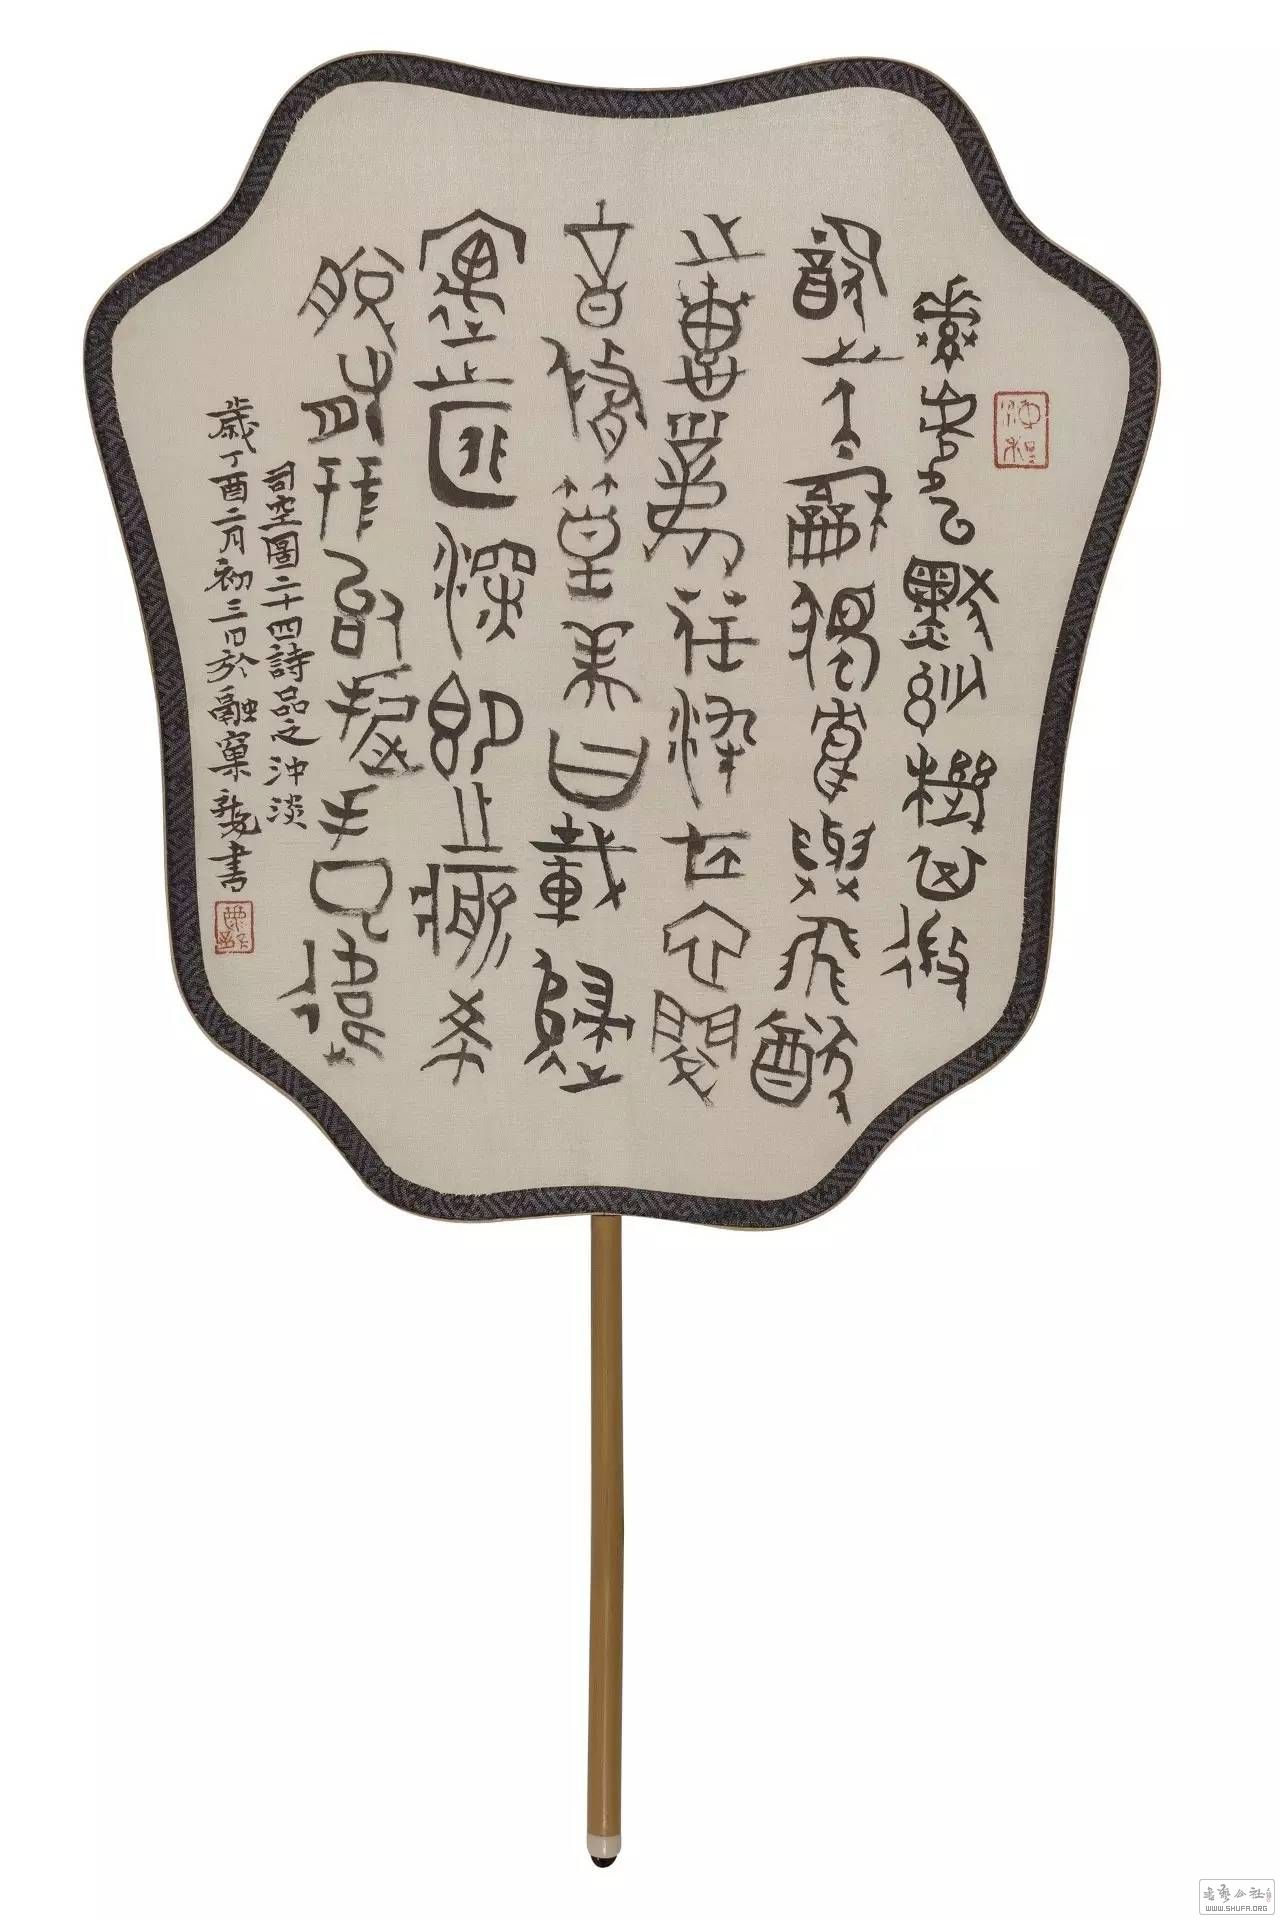 素處以默妙機其微
飲之太和獨鶴與飛猶
之惠風荏苒在衣閱
音脩篁美曰載歸
遇之匪深即之愈希
脫有形似握手已違
司空圖二十四詩品之沖淡
歲丁酉二月初三日於融窠書
WWW.SHUFA.ORG